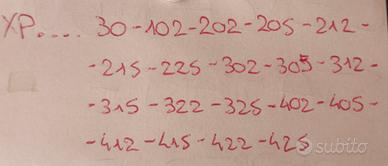 XP.... 30-102-202-205-212-
-215-225-302-305-312-
-315-322-325-402-405-
-412-415-422-425
subito